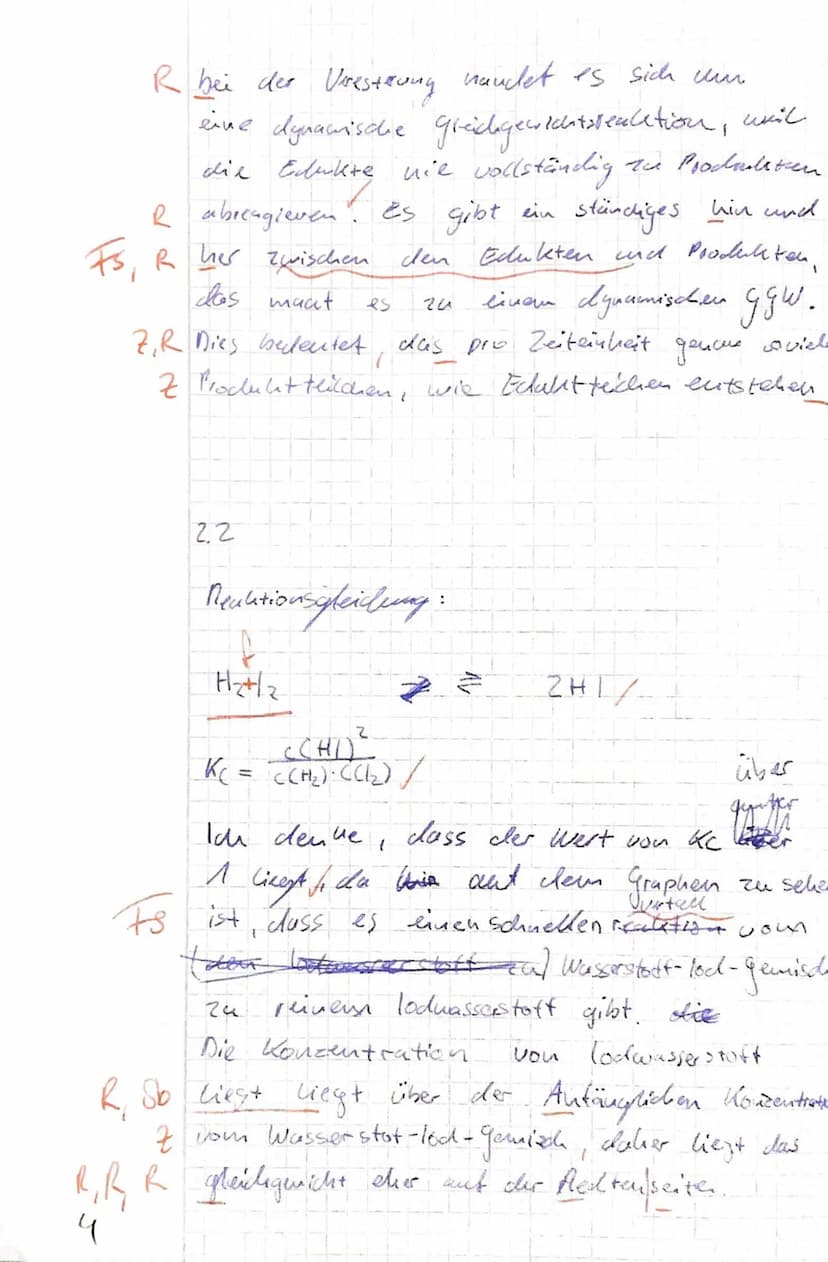 R bei der Veresterung handelt es sich um
eine dynamische Gleichgewichtsreaktion, weil
die Edukte nie vollständig zu Produkten
R abreagieren. Es gibt ein ständiges hin und
Fs, R her zwischen den Edukten und Produkten,
das macht es zu einem dynamischen GGW.
Z, R Dies bedeutet, das pro Zeiteinheit genau soviele
Z Produktteilchen, wie Eduktteilchen entstehen
2.2
Reaktionsgleichung:
f
H₂+I₂ ⇌ 2HI
Kc = c(HI)² / c(H₂)·c(I₂)
über
Ich denke, dass der Wert von Kc
1 liegt, da auf dem Graphen zu sehen
Fs ist, dass es einen schnellen vom
Wasserstoff-Iod-Gemisch
zu reinem Iodwasserstoff gibt. die
Die Konzentration von Iodwasserstoff
R, Sb liegt liegt über der Anfänglichen Konzentration
Z vom Wasserstof-Iod-Gemisch, daher liegt das
R, R, R gleichgewicht eher auf der Rechten seiten.
4